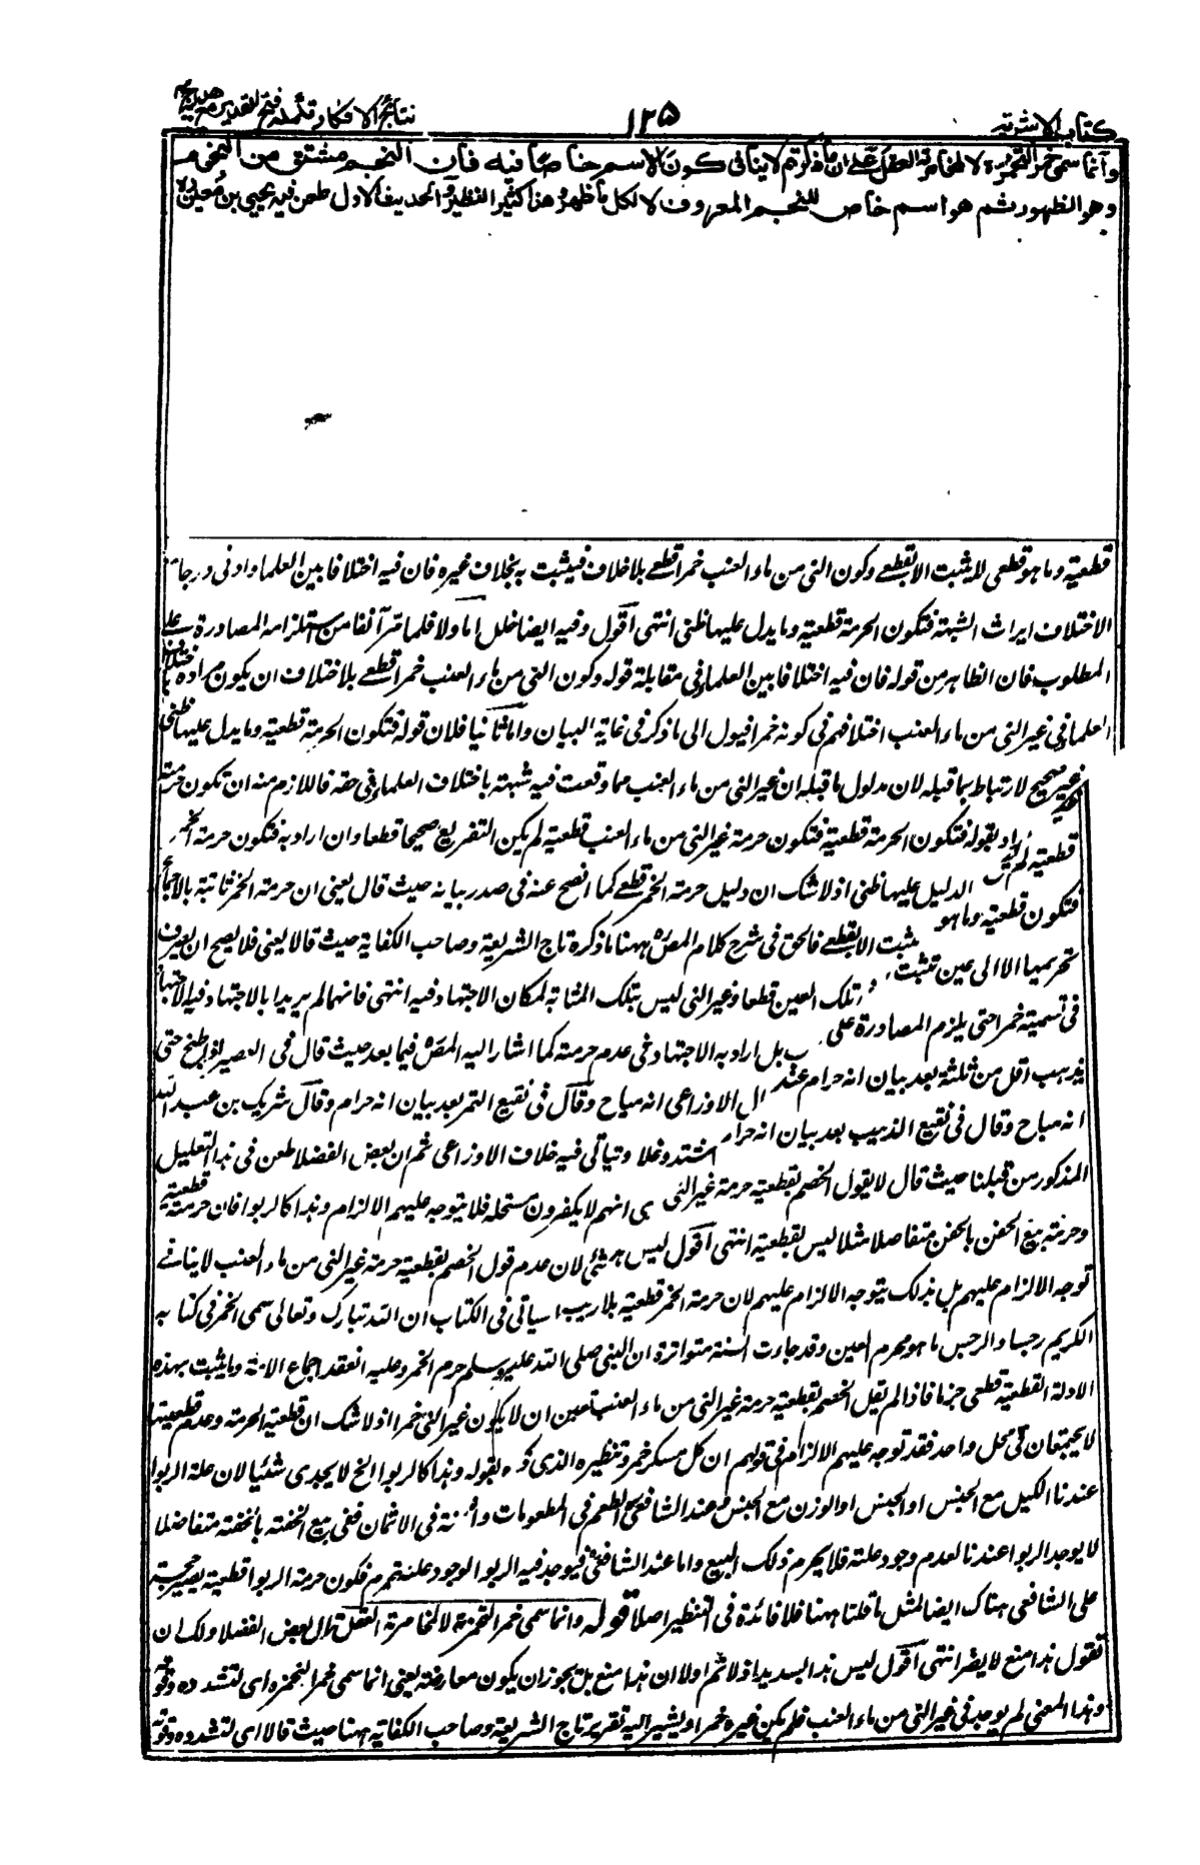 كتاب الاشربة
١٣٥
نتائج الافكار تكملة فتح القدير مع هداية ج
وانما سمى خمرا لتخمره لا لمخامرته العقل على ان ما ذكرتم لا ينافى كون الاسم خاصا فيه فان النجم مشتق من النجوم
وهو الظهور ثم هو اسم خاص للنجم المعروف لا لكل ما ظهر وهذا كثير النظير والحديث الاول طعن فيه يحيى بن معين
قطعية وما هو قطعى لا يثبت الا بقطعى وكون النى من ماء العنب خمرا قطعى بلا خلاف فيثبت به بخلاف غيره فان فيه اختلافا بين العلماء وادنى درجات
الاختلاف ايراث الشبهة فتكون الحرمة قطعية وما يدل عليها ظنى انتهى اقول وفيه ايضا خلل اما اولا فلما مر آنفا من استلزامه المصادرة على
المطلوب فان الظاهر من قوله فان فيه اختلافا بين العلماء فى مقابلة قوله وكون النى من ماء العنب خمرا قطعى بلا اختلاف ان يكون مراده باختلاف
العلماء فى غير النى من ماء العنب اختلافهم فى كونه خمرا فيول الى ما ذكر فى غاية البيان واما ثانيا فلان قوله فتكون الحرمة قطعية وما يدل عليها ظنى
غير صحيح لارتباط بما قبله لان مدلول ما قبله ان غير النى من ماء العنب مما وقعت فيه شبهة باختلاف العلماء فى حقه فاللازم منه ان تكون حرمته
قطعية بقوله فتكون الحرمة قطعية فتكون حرمة غير النى من ماء العنب قطعية لم يكن التفريع صحيحا قطعا وان اراد به فتكون حرمة الخمر
فتكون قطعية وما هو الدليل عليها ظنى اذ لا شك ان دليل حرمة الخمر قطعى كما افصح عنه فى صدر بيانه حيث قال يعنى ان حرمة الخمر ثابتة بالاجماع
يثبت الا بقطعى فالحق فى شرح كلام المصه ههنا ما ذكره تاج الشريعة وصاحب الكفاية حيث قالا يعنى فلا يصح ان يصرف
تحريمها الا الى عين تثبت تلك العين قطعا وغير النى ليس بتلك المثابة لمكان الاجتهاد فيه انتهى فانهما لم يريدا بالاجتهاد فيه الاجتهاد
فى تسميته خمرا حتى يلزم المصادرة على بل اراد به الاجتهاد فى عدم حرمته كما اشار اليه المصه فيما بعد حيث قال فى العصير اذا طبخ حتى
يذهب اقل من ثلثيه بعد بيان انه حرام عندنا قال الاوزاعى انه مباح وقال فى نقيع التمر بعد بيان انه حرام وقال شريك بن عبد الله
انه مباح وقال فى نقيع الزبيب بعد بيان انه حرام اشتد وغلا ويتأتى فيه خلاف الاوزاعى ثم ان بعض الفضلا طعن فى هذا التعليل
المذكور من قبلنا حيث قال لا يقول الخصم بقطعية حرمة غير النى انهم لا يكفرون مستحله فلا يتوجه عليهم الالزام وهذا كالربوا فان حرمته قطعية
وحرمة بيع الحفن بالحفن متفاضلا مثلا ليس بقطعية انتهى اقول ليس هذا بشئ لان عدم قول الخصم بقطعية حرمة غير النى من ماء العنب لا ينافى
توجه الالزام عليهم بل بذلك يتوجه الالزام عليهم لان حرمة الخمر قطعية بلا ريب سيأتى فى الكتاب ان الله تبارك وتعالى سمى الخمر فى كتابه
الكريم رجسا والرجس ما هو محرم العين وقد جاءت السنة متواترة ان النبى صلى الله عليه وسلم حرم الخمر وعليه انعقد اجماع الامة وما يثبت بهذه
الادلة القطعية قطعى جزما فاذا لم يقل الخصم بقطعية حرمة غير النى من ماء العنب تعين ان لا يكون غير النى خمرا اذ لا شك ان قطعية الحرمة وعدم قطعيتها
لا يجتمعان فى محل واحد فقد توجه عليهم الالزام فى قولهم ان كل مسكر خمر وتنظيره الذى ذكره بقوله وهذا كالربوا الخ لا يجدى شيئا لان علة الربوا
عندنا الكيل مع الجنس او الوزن مع الجنس وعند الشافعى الطعم فى المطعومات والثمنية فى الاثمان ففى بيع الحفنة بالحفنة متفاضلا
لا يوجد الربوا عندنا لعدم وجود علته فلا يحرم ذلك البيع واما عند الشافعى فيوجد فيه الربوا لوجود علته فيحرم فكون حرمة الربوا قطعية يصير حجة
على الشافعى هناك ايضا لمثل ما قلنا ههنا فلا فائدة فى التنظير اصلا قوله وانما سمى خمرا لتخمره لا لمخامرته العقل قال بعض الفضلا ولك ان
تقول هذا منع لا يضر انتهى اقول ليس هذا بسديد اذ لا ثم اولا ان هذا منع بل يجوز ان يكون معارضة يعنى انما سمى خمرا لتخمره اى لتشدده وقوته
وهذا المعنى لم يوجد فى غير النى من ماء العنب فلم يكن غيره خمرا ويشير اليه تقرير تاج الشريعة وصاحب الكفاية ههنا حيث قالا اى لتشدده وقوته